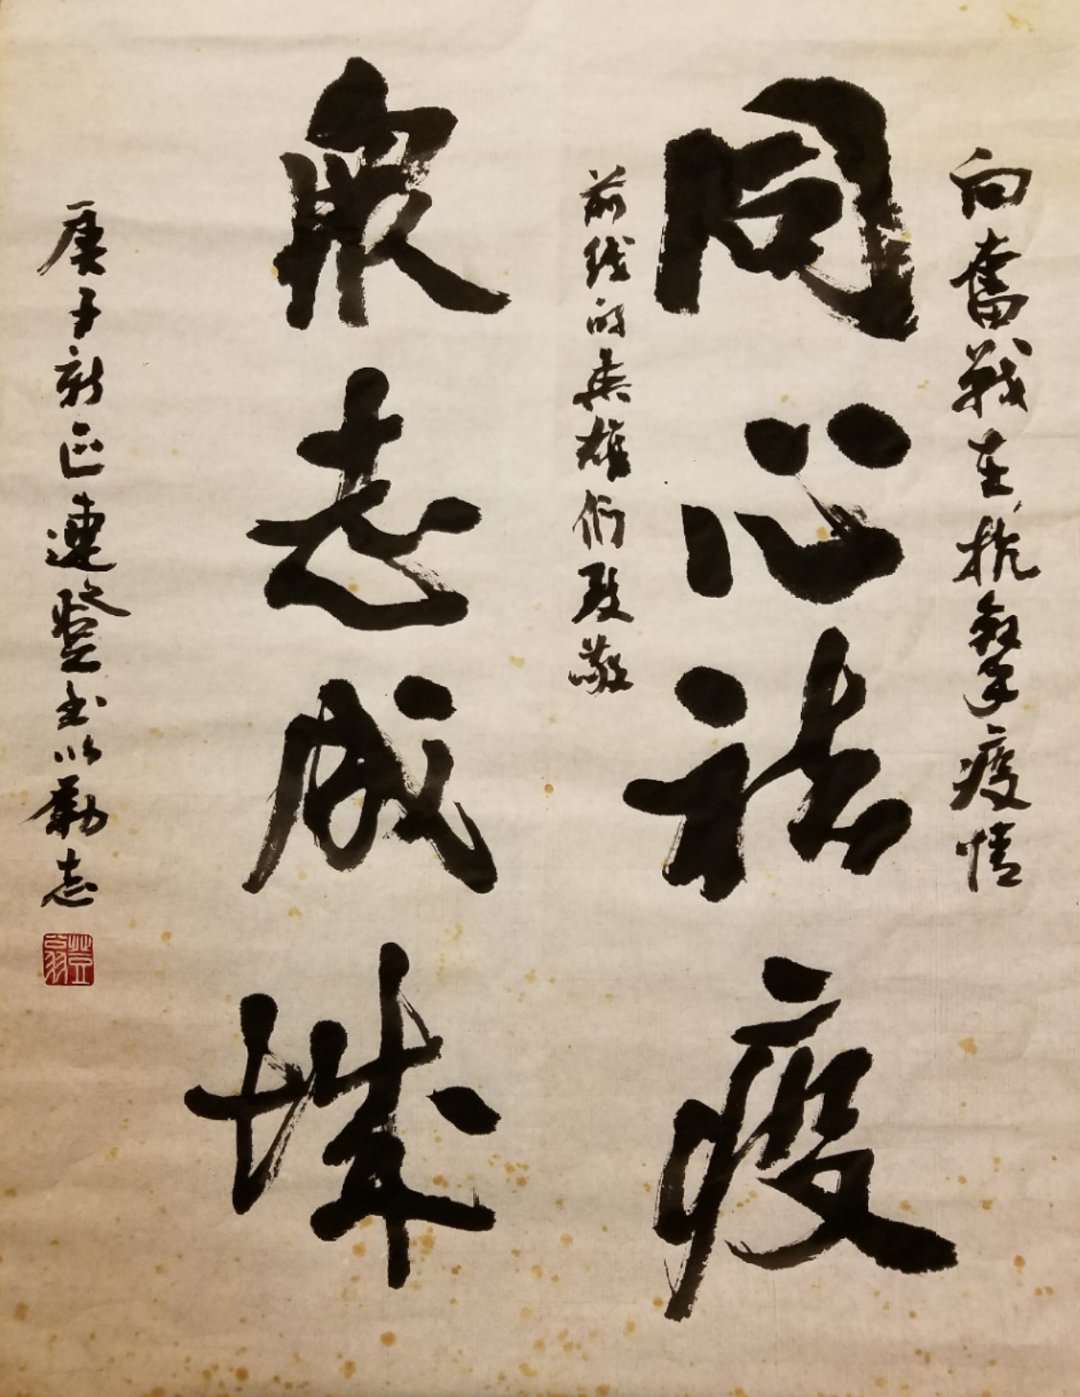 向奮戰在抗擊疫情
同心祛疫
前线的英雄們致敬
眾志成城
庚子新正連登书以勵志